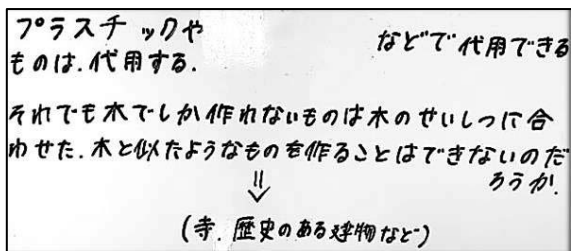 プラスチックや
などで代用できる
ものは.代用する.
それでも木でしか作れないものは木のせいしつに合
わせた.木と似たようなものを作ることはできないのだ
ろうか.
⇓
(寺.歴史のある建物など)